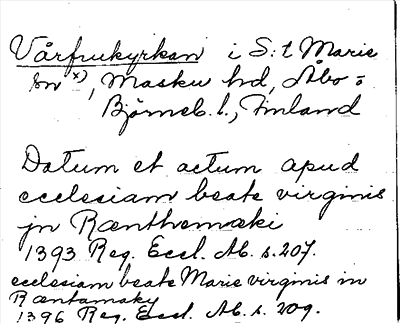 Vårfrukyrkan i S:t Marie
sn x), Masku hd, Åbo =
Björneb. l., Finland
Datum et actum apud
ecclesiam beate virginis
jn Rænthemæki
1393 Reg. Eccl. Ab. s. 207.
ecclesiam beate Marie virginis in
Ræntamæky
1396 Reg. Eccl. Ab. s. 209.